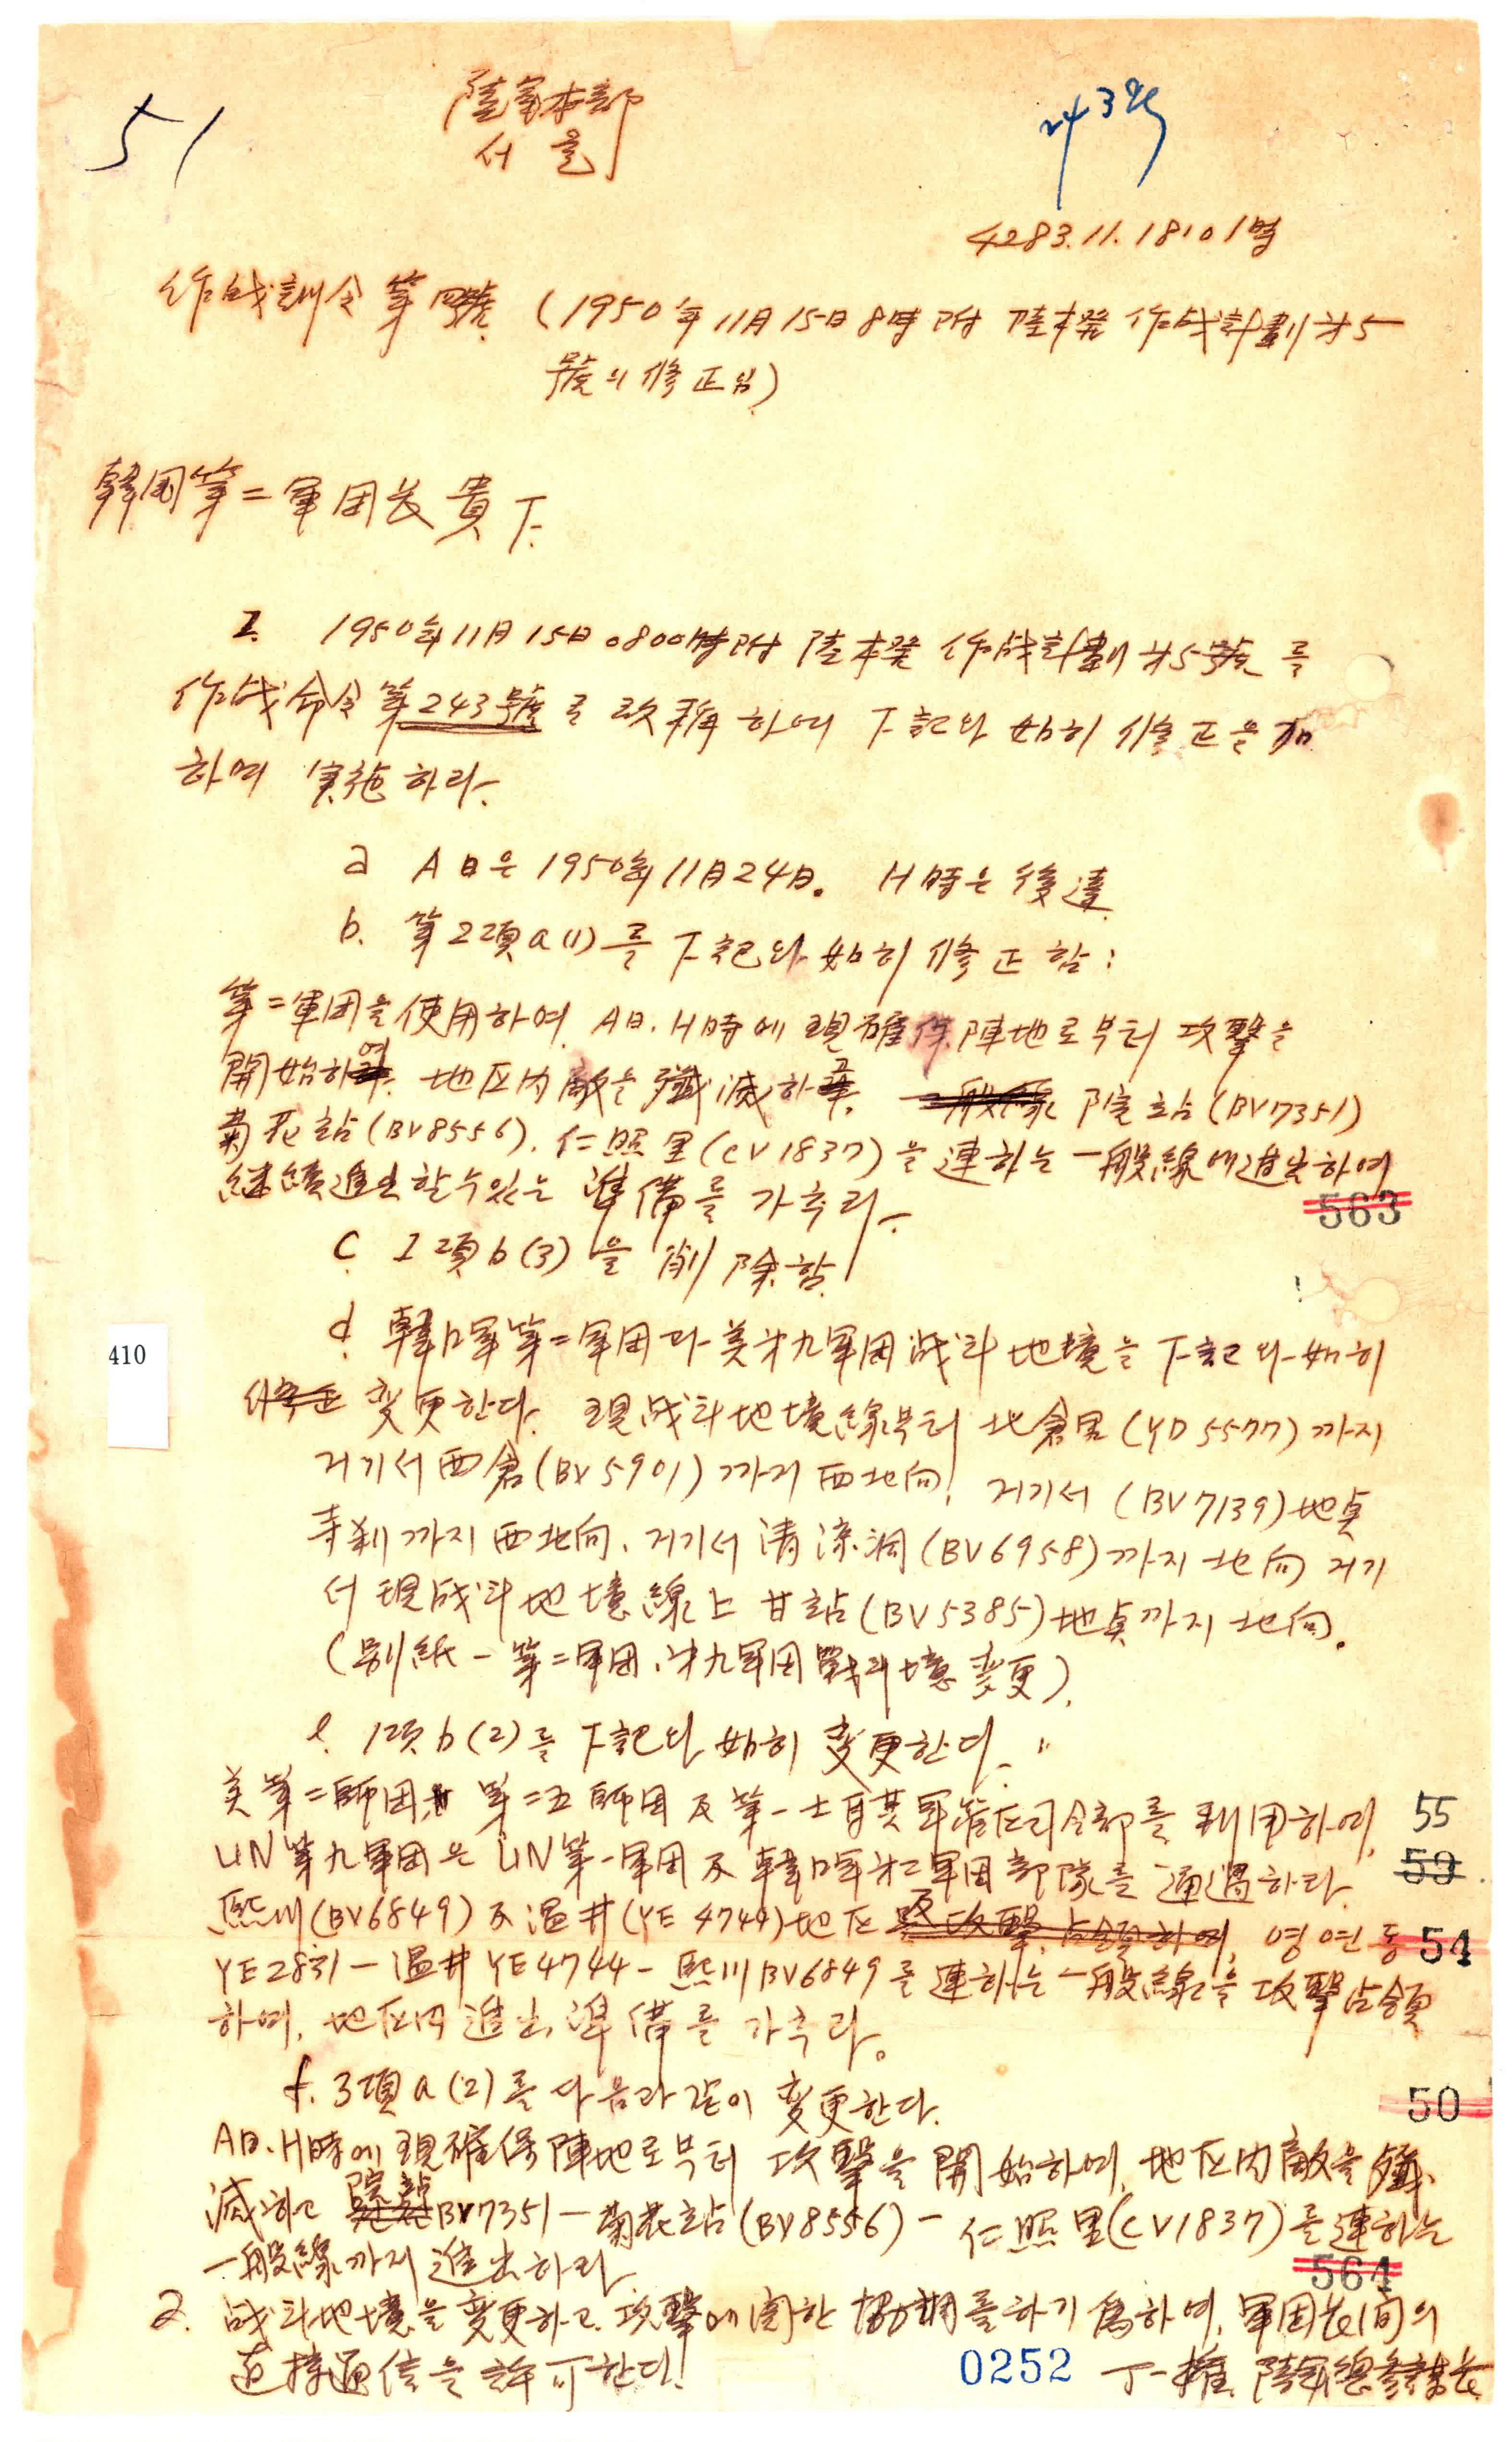 51
陸軍本部
서울
243 號
4283.11.18.101時
作战訓令 第四號 (1950年11月15日8時附 陸本發 作战計劃 才5
號의 修正임)
韓国第二軍団長貴下
I. 1950年11月15日0800時附 陸本發 作战計劃 才5號를
作战命令第243號로 改稱하여 下記와 如히 修正을 加
하여 実施하라.
a A日은 1950年11月24日. H時은 後達
b. 第2項a(1)를 下記와 如히 修正함:
第二軍団을使用하여. A日.H時에 現確保陣地로부터 攻擊을
開始하여. 地区内敵을 殲滅하고. 一般線 院站(BV7351)
菊花站(BV8556). 仁照里(CV1837)을 連하는 一般線에進出하여
継續進出할수있는 準備를 가추라.
563
C. I項b(3)을 削除함.
d. 韓国軍第二軍団과 美才九軍団战斗地境을 下記와 如히
修正 変更한다. 現战斗地境線부터 北倉里(YD5577)까지
거기서 西倉(BV5901)까지 西北向. 거기서 (BV7139)地点
寺刹까지 西北向. 거기서 清涼洞(BV6958)까지 北向 거기
서 現战斗地境線上 甘站(BV5385)地点까지 北向.
(別紙一 第二軍団.才九軍団戰斗境変更).
410
e. 1項b(2)를 下記와 如히 変更한다.
美第二師団 第二五師団 及 第一土耳其軍旅団司令部를 利用하여.
55
UN第九軍団은 UN第一軍団 及 韓国軍才二軍団部隊를 通過하라.
59
熙川(BV6849) 及 温井(YE4744)地区 及 攻擊.占領하여. 영연동
54
YE2831-温井YE4744-熙川BV6849를 連하는 一般線을 攻擊占領
하여. 地区内 進出 準備를 가추라.
f. 3項a(2)를 다음과 같이 変更한다.
50
A日.H時에 現確保陣地로부터 攻擊을 開始하여. 地区内敵을 殲
滅하고 院站BV7351-菊花站(BV8556)-仁照里(CV1837)를連하는
一般線까지 進出하라.
564
2. 战斗地境을変更하고.攻擊에関한 協調를하기 爲하여. 軍団長間의
直接通信을 許可한다.
0252
丁一權 陸軍總參謀長